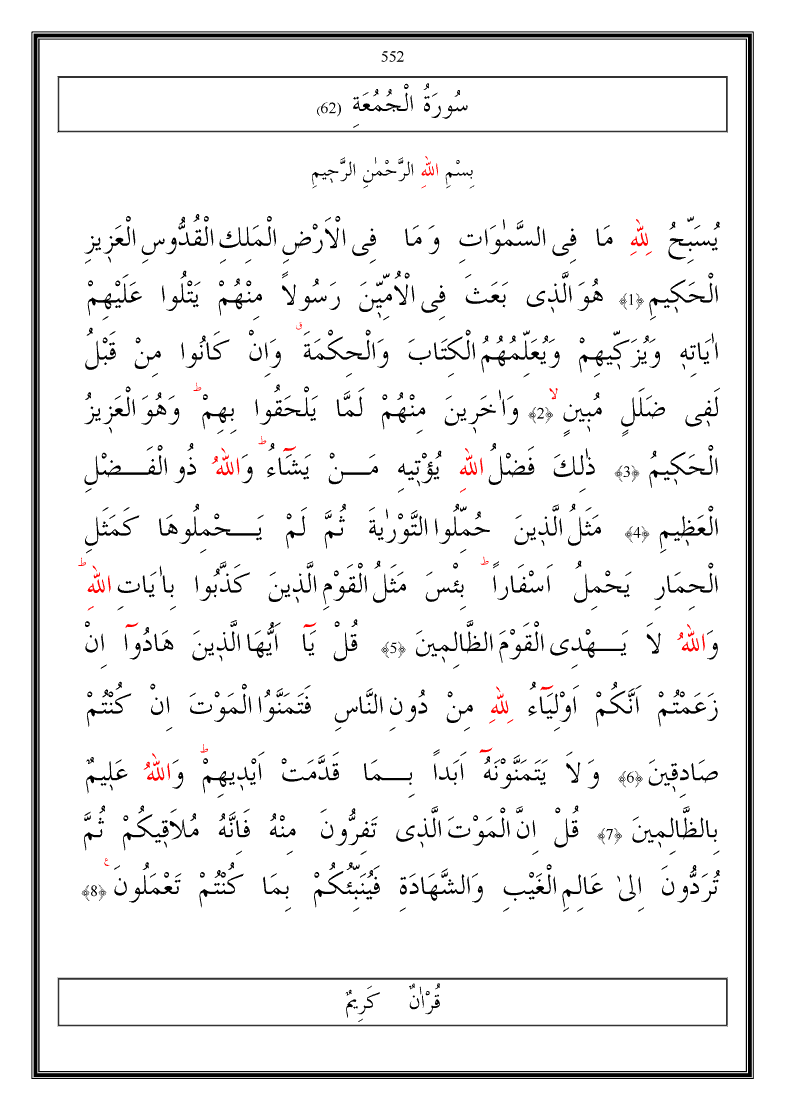 552
سُورَةُ الْجُمُعَةِ (62)
بِسْمِ اللهِ الرَّحْمٰنِ الرَّح۪يمِ
يُسَبِّحُ لِلّٰهِ مَا فِى السَّمٰوَاتِ وَ مَا فِى الْاَرْضِ الْمَلِكِ الْقُدُّوسِ الْعَز۪يزِ
الْحَك۪يمِ ﴿1﴾ هُوَ الَّذ۪ى بَعَثَ فِى الْاُمِّيّ۪نَ رَسُولاً مِنْهُمْ يَتْلُوا عَلَيْهِمْ
اٰيَاتِه۪ وَيُزَكّ۪يهِمْ وَيُعَلِّمُهُمُ الْكِتَابَ وَالْحِكْمَةَۗ وَاِنْ كَانُوا مِنْ قَبْلُ
لَف۪ى ضَلَلٍ مُب۪ينٍۙ ﴿2﴾ وَاٰخَر۪ينَ مِنْهُمْ لَمَّا يَلْحَقُوا بِهِمْؕ وَهُوَ الْعَز۪يزُ
الْحَك۪يمُ ﴿3﴾ ذٰلِكَ فَضْلُ اللهِ يُؤْت۪يهِ مَـــنْ يَشَٓاءُؕ وَاللهُ ذُو الْفَـــضْلِ
الْعَظ۪يمِ ﴿4﴾ مَثَلُ الَّذ۪ينَ حُمِّلُوا التَّوْرٰيةَ ثُمَّ لَمْ يَـــحْمِلُوهَا كَمَثَلِ
الْحِمَارِ يَحْمِلُ اَسْفَاراًؕ بِئْسَ مَثَلُ الْقَوْمِ الَّذ۪ينَ كَذَّبُوا بِاٰيَاتِ اللهِؕ
وَاللهُ لاَ يَـــهْدِى الْقَوْمَ الظَّالِم۪ينَ ﴿5﴾ قُلْ يَٓا اَيُّهَا الَّذ۪ينَ هَادُٓوا اِنْ
زَعَمْتُمْ اَنَّكُمْ اَوْلِيَٓاءُ لِلّٰهِ مِنْ دُونِ النَّاسِ فَتَمَنَّوُا الْمَوْتَ اِنْ كُنْتُمْ
صَادِق۪ينَ ﴿6﴾ وَ لاَ يَتَمَنَّوْنَهُٓ اَبَداً بِـــمَا قَدَّمَتْ اَيْد۪يهِمْؕ وَاللهُ عَل۪يمٌ
بِالظَّالِم۪ينَ ﴿7﴾ قُلْ اِنَّ الْمَوْتَ الَّذ۪ى تَفِرُّونَ مِنْهُ فَاِنَّهُ مُلاَق۪يكُمْ ثُمَّ
تُرَدُّونَ اِلىٰ عَالِمِ الْغَيْبِ وَالشَّهَادَةِ فَيُنَبِّئُكُمْ بِمَا كُنْتُمْ تَعْمَلُونَۧ ﴿8﴾
قُرْاٰنٌ كَرِيمٌ